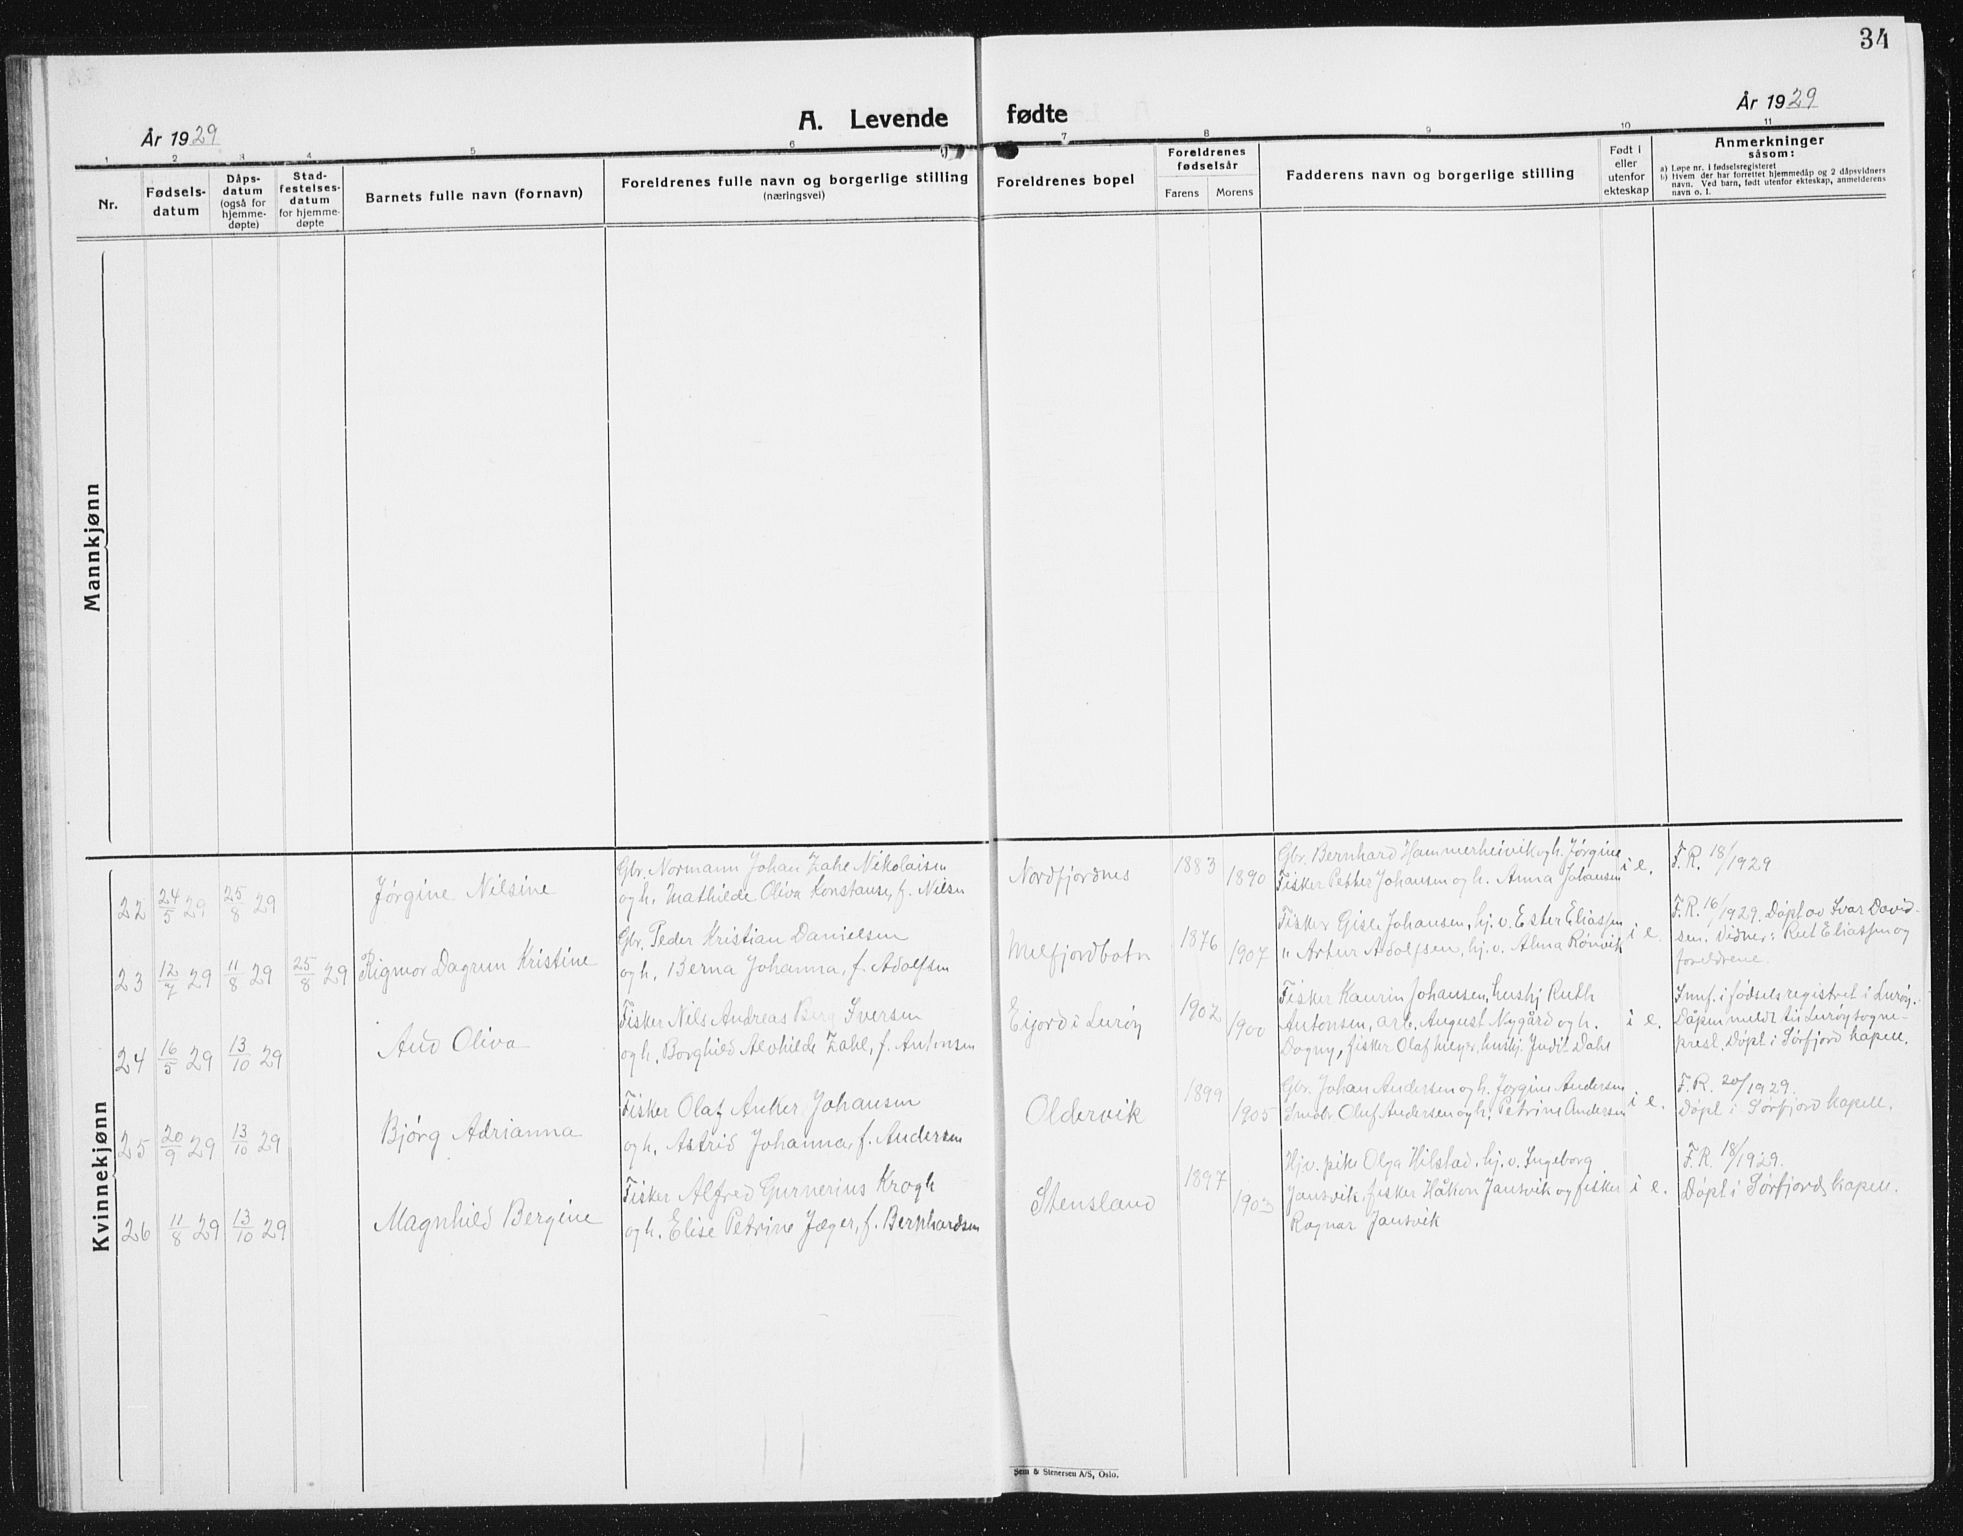 34
År 1929
A. Levende fødte
År 1929
1 2 3 4 5 6 7 8 9 10 11
Nr.
Fødsels-
datum
Dåps-
datum
(også for
hjemme-
døpte)
Stad-
festelses-
datum
for hjemme-
døpte
Barnets fulle navn (fornavn)
Foreldrenes fulle navn og borgerlige stilling
(næringsvei)
Foreldrenes bopel
Foreldrenes
fødselsår
Farens Morens
Fadderens navn og borgerlige stilling
Født i
eller
utenfor
ekteskap
Anmerkninger
såsom:
a) Løpe nr. i fødselsregisteret
b) Hvem der har forrettet hjemmedåp og 2 dåpsvidners
navn. Ved barn, født utenfor ekteskap, anmelderens
navn o. l.
Mannkjønn
Kvinnekjønn
22 24/5 29 25/8 29
Jørgine Nilsine
Gbr. Normann Johan Zahl Nikolaisen
og h. Mathilde Oliva Konstanse, f. Nilsen
Nordfjordnes
1883 1890
Gbr. Bernhard Hammerheivik og h. Jørgine
Fisker Petter Johansen og h. Anna Johansen
i e.
F.R. 18/1929
23 12/7 29 11/8 29 25/8 29
Rigmor Dagrun Kristine
Gbr. Peder Kristian Danielsen
og h. Berna Johanna, f. Adolfsen
Melfjordbotn
1876 1907
Fisker Gisle Johansen, hj. v. Ester Eliassen
" Artur Adolfsen, hj. v. Alma Rönvik
i e.
F.R. 16/1929. Døpt av Ivar David-
sen. Vidner: Rut Eliassen og
foreldrene.
24 16/5 29 13/10 29
Aud Oliva
Fisker Nils Andreas Berg Iversen
og h. Borghild Alvhilde Zahl, f. Antonsen
Eijord i Lurøy
1902 1900
Fisker Kaurin Johansen, hushj Ruth
Antonsen, arb. August Nygård og h.
Dagny, fisker Olaf Meyer, hushj. Judit Dahl
i e.
Innf. i fødselsregistret i Lurøy.
Dåpen meldt til Lurøy sogne-
prest. Døpt i Sørfjord kapell.
25 20/9 29 13/10 29
Bjørg Adrianna
Fisker Olaf Anker Johansen
og h. Astrid Johanna, f. Andersen
Oldervik
1899 1905
Gbr. Johan Andersen og h. Jørgine Andersen
Småbr. Oluf Andersen og h. Petrine Andersen
i e.
F.R. 20/1929.
Døpt i Sørfjord kapell.
26 11/8 29 13/10 29
Magnhild Bergine
Fisker Alfred Gurnerius Krogh
og h. Elise Petrine Jæger, f. Bernhardsen
Stensland
1897 1903
Hjv. pike Olga Hilstad, hj. v. Ingeborg
Jansvik, fisker Håkon Jansvik og fisker
Ragnar Jansvik
i e.
F.R. 18/1929.
Døpt i Sørfjord kapell.
Sem & Stenersen A/S, Oslo.